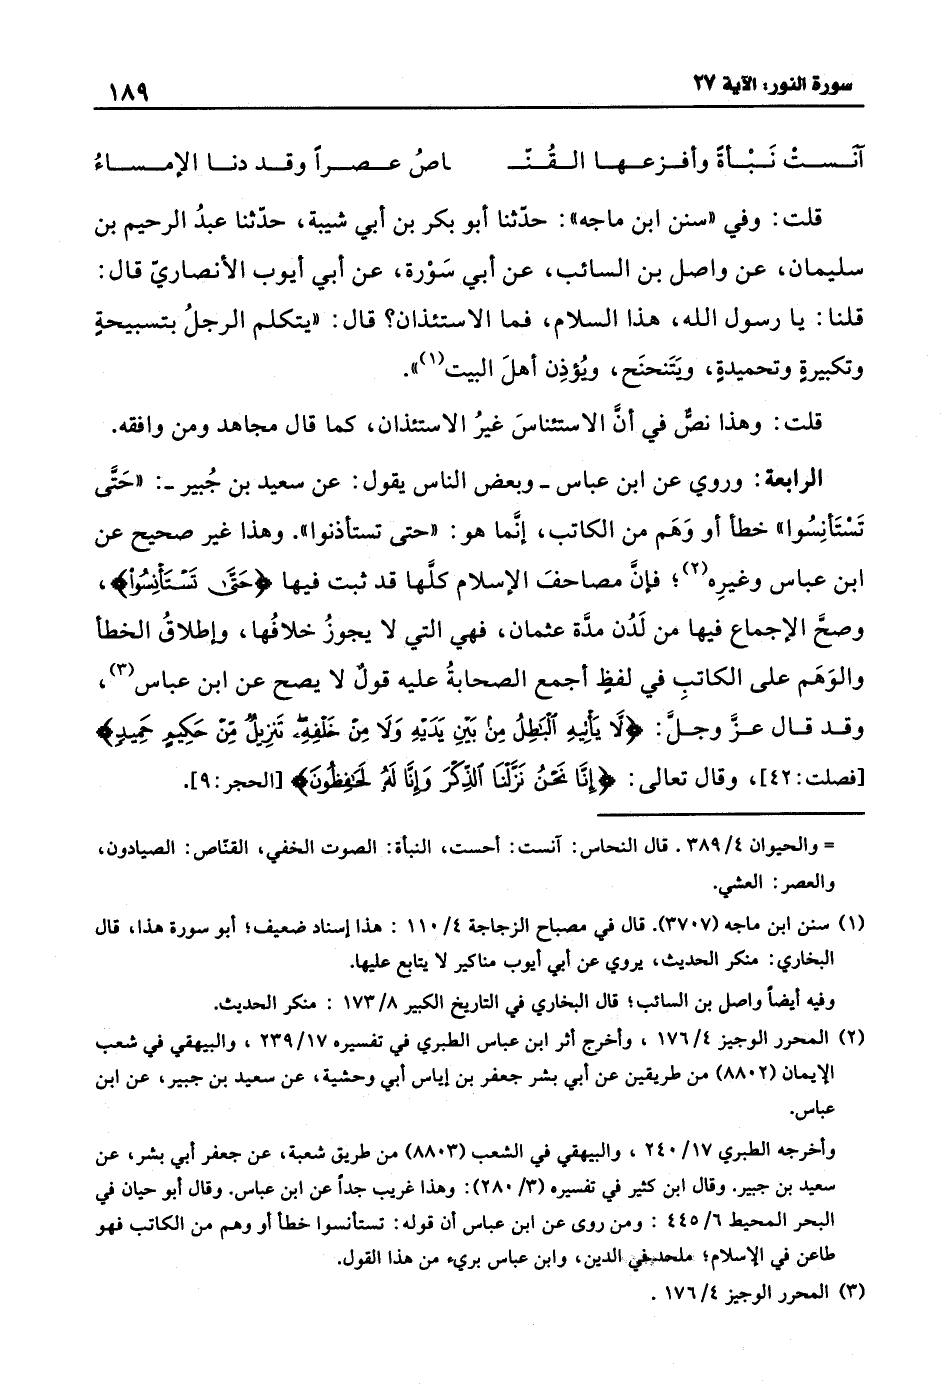 سورة النور: الآية ٢٧
١٨٩
آنَسَتْ نَبْأةً وأفزعها القُنّـ ـاصُ عصراً وقد دنا الإمساءُ
قلت: وفي «سنن ابن ماجه»: حدّثنا أبو بكر بن أبي شيبة، حدّثنا عبدُ الرحيم بن
سليمان، عن واصل بن السائب، عن أبي سَوْرة، عن أبي أيوب الأنصاريّ قال:
قلنا: يا رسول الله، هذا السلام، فما الاستئذان؟ قال: «يتكلم الرجلُ بتسبيحةٍ
وتكبيرةٍ وتحميدةٍ، ويَتَنحنَح، ويُؤذِن أهلَ البيت(١)».
قلت: وهذا نصٌّ في أنَّ الاستئناسَ غيرُ الاستئذان، كما قال مجاهد ومن وافقه.
الرابعة: وروي عن ابن عباس ـ وبعض الناس يقول: عن سعيد بن جُبير ـ: «حَتَّى
تَسْتَأنِسُوا» خطأ أو وَهَم من الكاتب، إنَّما هو: «حتى تستأذنوا». وهذا غير صحيح عن
ابن عباس وغيرِه(٢)؛ فإنَّ مصاحفَ الإسلام كلَّها قد ثبت فيها ﴿حَتَّىٰ تَسْتَأْنِسُوا۟﴾،
وصحَّ الإجماع فيها من لَدُن مدَّة عثمان، فهي التي لا يجوزُ خلافُها، وإطلاقُ الخطأ
والوَهَم على الكاتبِ في لفظٍ أجمع الصحابةُ عليه قولٌ لا يصح عن ابن عباس(٣)،
وقد قال عزَّ وجلَّ: ﴿لَّا يَأْتِيهِ ٱلْبَٰطِلُ مِنۢ بَيْنِ يَدَيْهِ وَلَا مِنْ خَلْفِهِۦ تَنزِيلٌ مِّنْ حَكِيمٍ حَمِيدٍ﴾
[فصلت:٤٢]، وقال تعالى: ﴿إِنَّا نَحْنُ نَزَّلْنَا ٱلذِّكْرَ وَإِنَّا لَهُۥ لَحَٰفِظُونَ﴾ [الحجر:٩].
= والحيوان ٣٨٩/٤. قال النحاس: آنست: أحست، النبأة: الصوت الخفي، القنّاص: الصيادون،
والعصر: العشي.
(١) سنن ابن ماجه (٣٧٠٧). قال في مصباح الزجاجة ١١٠/٤ : هذا إسناد ضعيف؛ أبو سورة هذا، قال
البخاري: منكر الحديث، يروي عن أبي أيوب مناكير لا يتابع عليها.
وفيه أيضاً واصل بن السائب؛ قال البخاري في التاريخ الكبير ١٧٣/٨ : منكر الحديث.
(٢) المحرر الوجيز ١٧٦/٤ ، وأخرج أثر ابن عباس الطبري في تفسيره ٢٣٩/١٧ ، والبيهقي في شعب
الإيمان (٨٨٠٢) من طريقين عن أبي بشر جعفر بن إياس أبي وحشية، عن سعيد بن جبير، عن ابن
عباس.
وأخرجه الطبري ٢٤٠/١٧ ، والبيهقي في الشعب (٨٨٠٣) من طريق شعبة، عن جعفر أبي بشر، عن
سعيد بن جبير. وقال ابن كثير في تفسيره (٢٨٠/٣): وهذا غريب جداً عن ابن عباس. وقال أبو حيان في
البحر المحيط ٤٤٥/٦ : ومن روى عن ابن عباس أن قوله: تستأنسوا خطأ أو وهم من الكاتب فهو
طاعن في الإسلام؛ ملحد في الدين، وابن عباس بريء من هذا القول.
(٣) المحرر الوجيز ١٧٦/٤ .